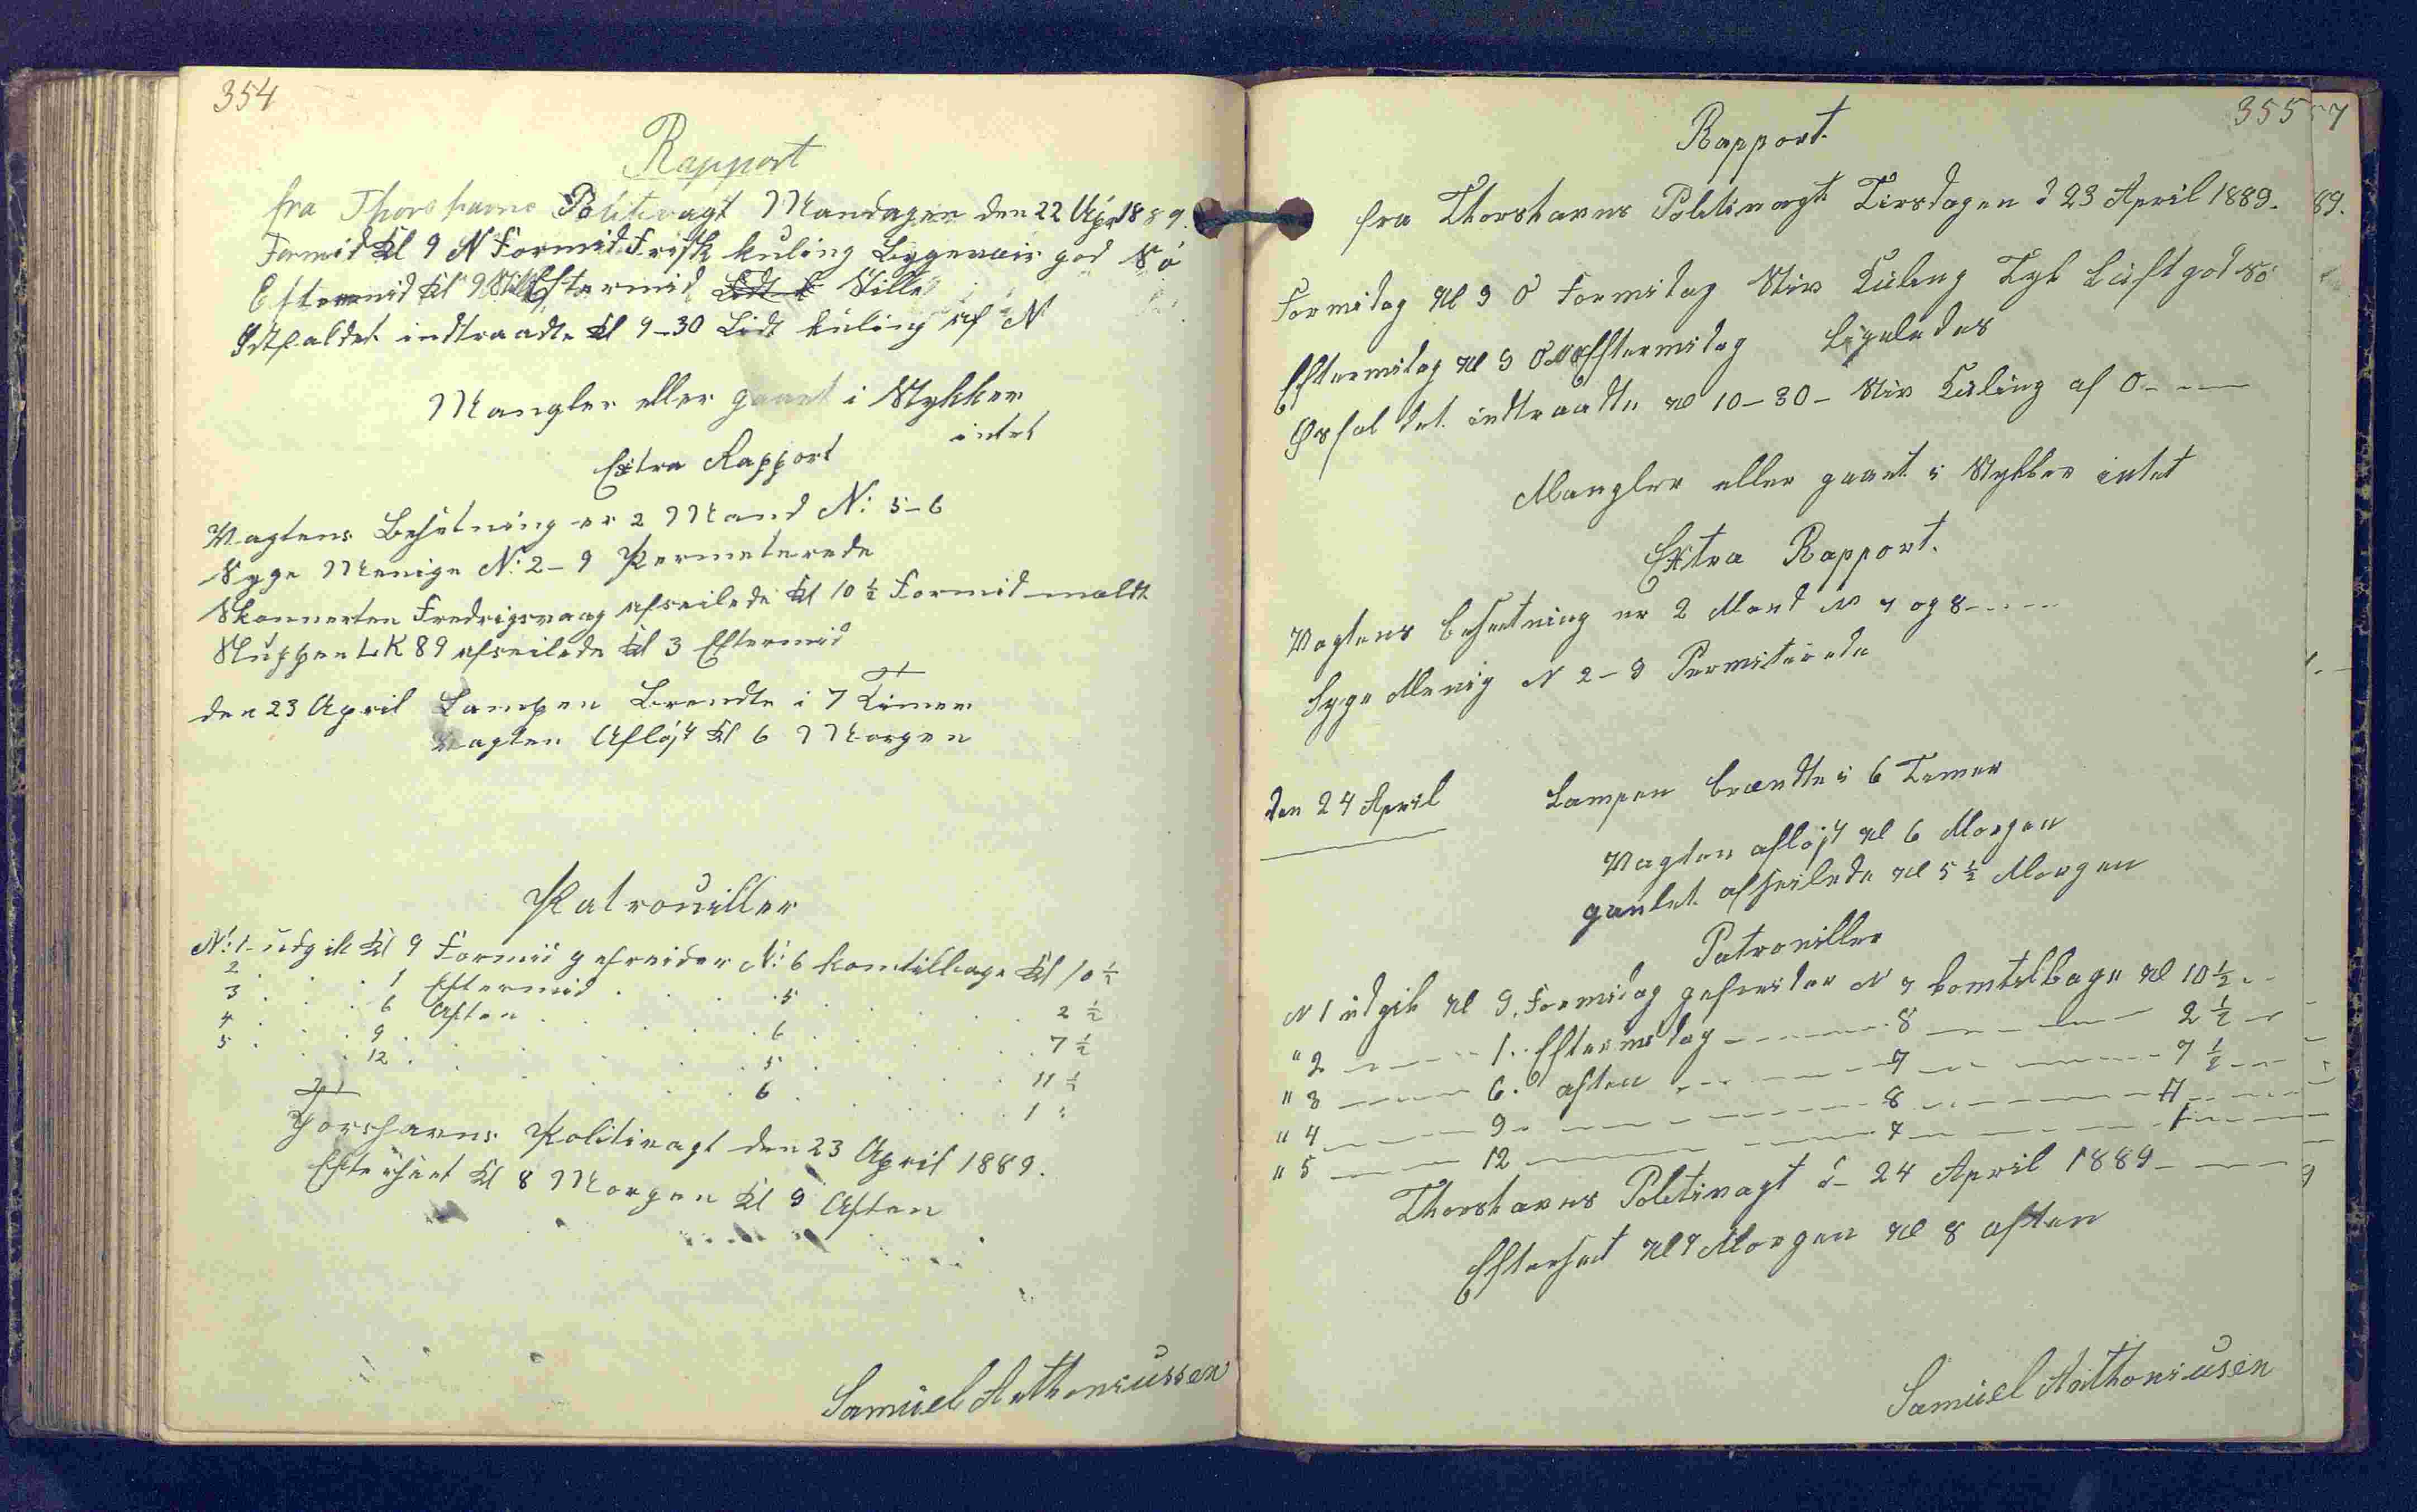 354
Rapport
fra Thorshavns Politivagt Mandagen den 22 Apr 1889.
Formid Kl 9 N Formid Frisk kuling Bygeveir god Sö
Eftermid Kl 9 Still Eftermid Stille
indtraadte Kl 9-30 Lidt kuling af N
Mangler eller gaaet i Stykker
intet
Extra Rapport
Vagtens Besetning er 2 Mand N: 5-6
Syge Menige N: 2-9 Permeterede
Skonnerten Fredrigsvaag afseilede Kl 10½ Formid
Sluppen LK 89 afseilede Kl 3 Eftermid
den 23 April Lampen Brendte i 7 Timer
Vagten Afløjst Kl 6 Morgen
Patrouiller
N: 1 udgik Kl 9 Formid gefreider N: 6 kom tilbage Kl 10½
2 . . . 1 Eftermid . . . 5 . . . 2½
3 . . . 6 Aften . . . 6 . . . 7½
4 . . . 9 . . . 5 . . . 11½
5 . . . 12 . . . 6 . . . 1 "
Thorshavns Politivagt den 23 April 1889.
Efterseet Kl 8 Morgen Kl 9 Aften
Samuel Anthoniussen
355
Rapport
fra Thorshavns Politivagt Tirsdagen d 23 April 1889.
Formidag Kl 9 O Formidag Stiv Kuling Tyk Luft god Sö
Eftermidag Kl 9 Eftermidag Ligeledes
indtraadte Kl 10-30- Stiv Kuling af O - - —
Mangler eller gaaet i Stykker intet
Extra Rapport.
Vagtens besetning er 2 Mand N 7 og 8 - - - -
Syge Menig N 2-9 Permiterede
den 24 April Lampen brændte i 6 Timer
Vagten afløjst Kl 6 Morgen
afseilede Kl 5½ Morgen
Patrouiller
N 1 udgik Kl 9. Formidag gefreider N 7 kom tilbage Kl 10½ - -
" 2 — - - - 1. Eftermidag - - - 8 — - - 2½ —
" 3 — - - - 6. aften - - - 7 — - - 7½ —
" 4 — - - - 9 - - - 8 - - - 11 - - -
" 5 — - - - 12 — - - 7 — - - 1 - - -
Thorshavns Politivagt d. 24 April 1889 - — —
Efterseet Kl 7 Morgen Kl 8 aften
Samuel Anthoniusen
57
89.